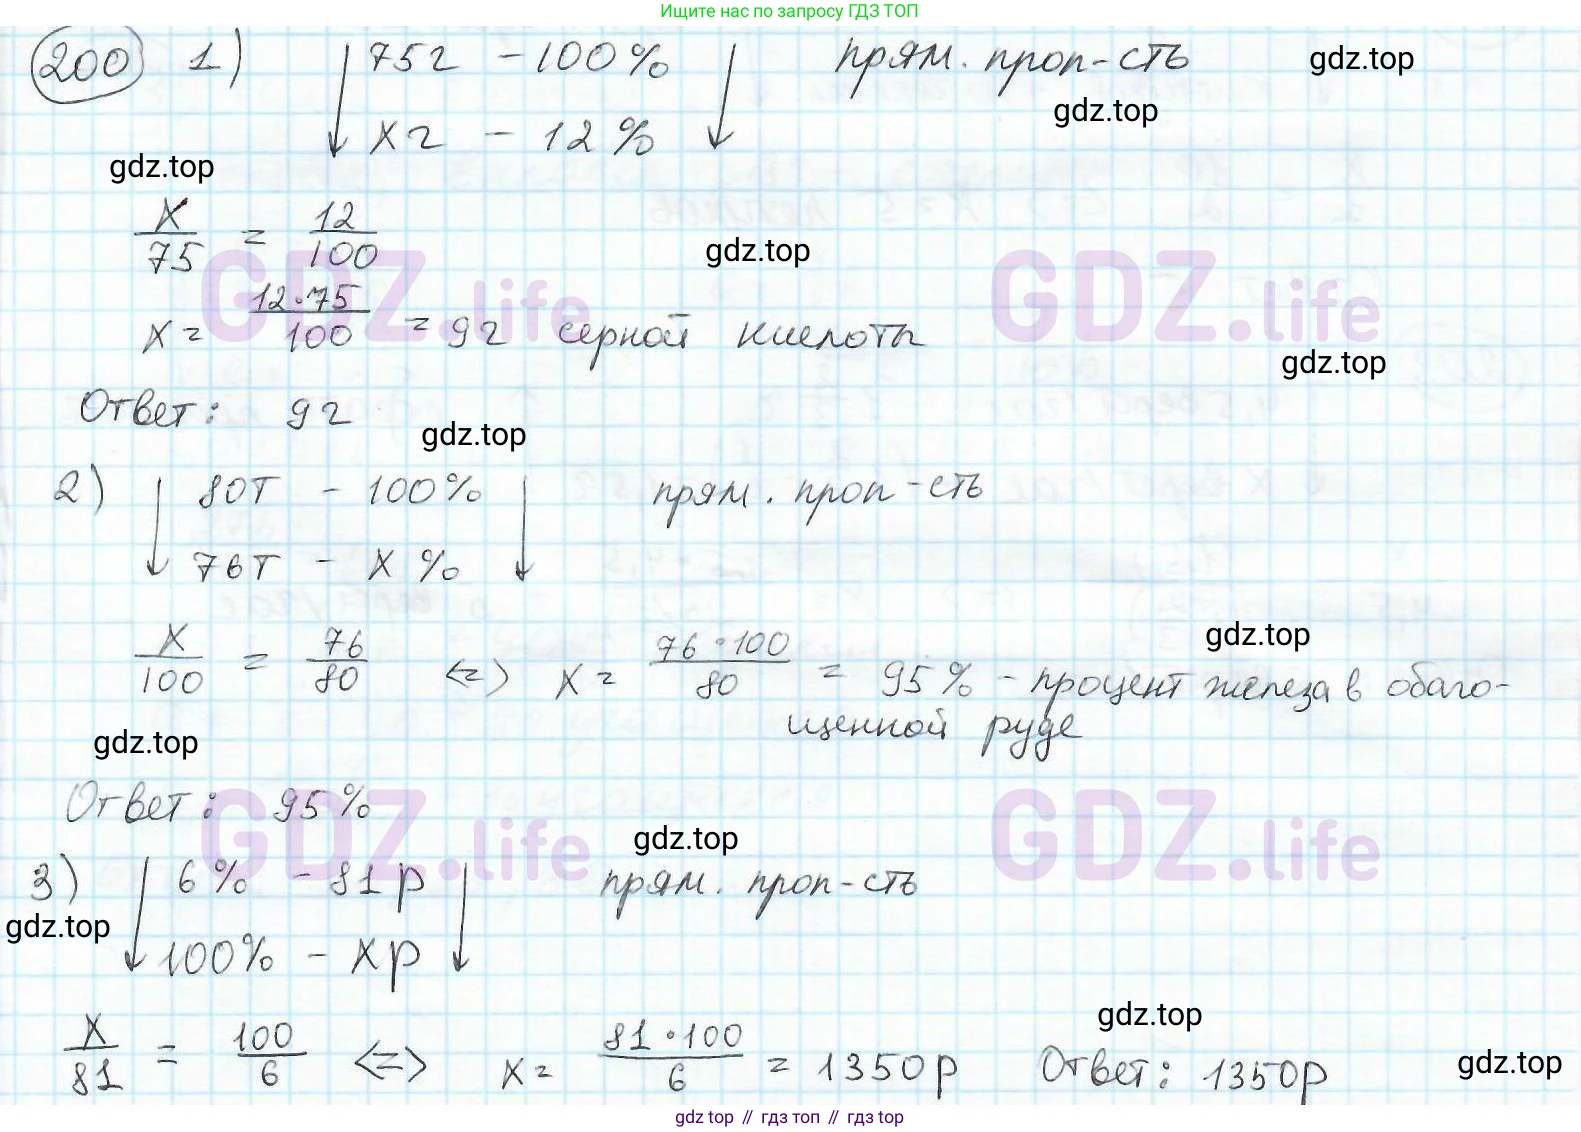 Ищите нас по запросу ГДЗ ТОП
200 1) 75г - 100% прям. проп-сть
gdz.top
gdz.top
xг - 12%
gdz.top
x/75 = 12/100
gdz.top
GDZ.life GDZ.life
x = 12·75/100 = 9г серной кислоты
gdz.top
Ответ: 9г
gdz.top
2) 80т - 100% прям. проп-сть
76т - x%
gdz.top
x/100 = 76/80 <=> x = 76·100/80 = 95% - процент железа в обаго-
щенной руде
gdz.top
Ответ: 95%
GDZ.life GDZ.life
gdz.top
3) 6% - 81р прям. проп-сть
gdz.top
100% - xр
gdz.top
x/81 = 100/6 <=> x = 81·100/6 = 1350р Ответ: 1350р
gdz.top
gdz top // гдз топ // гдз top